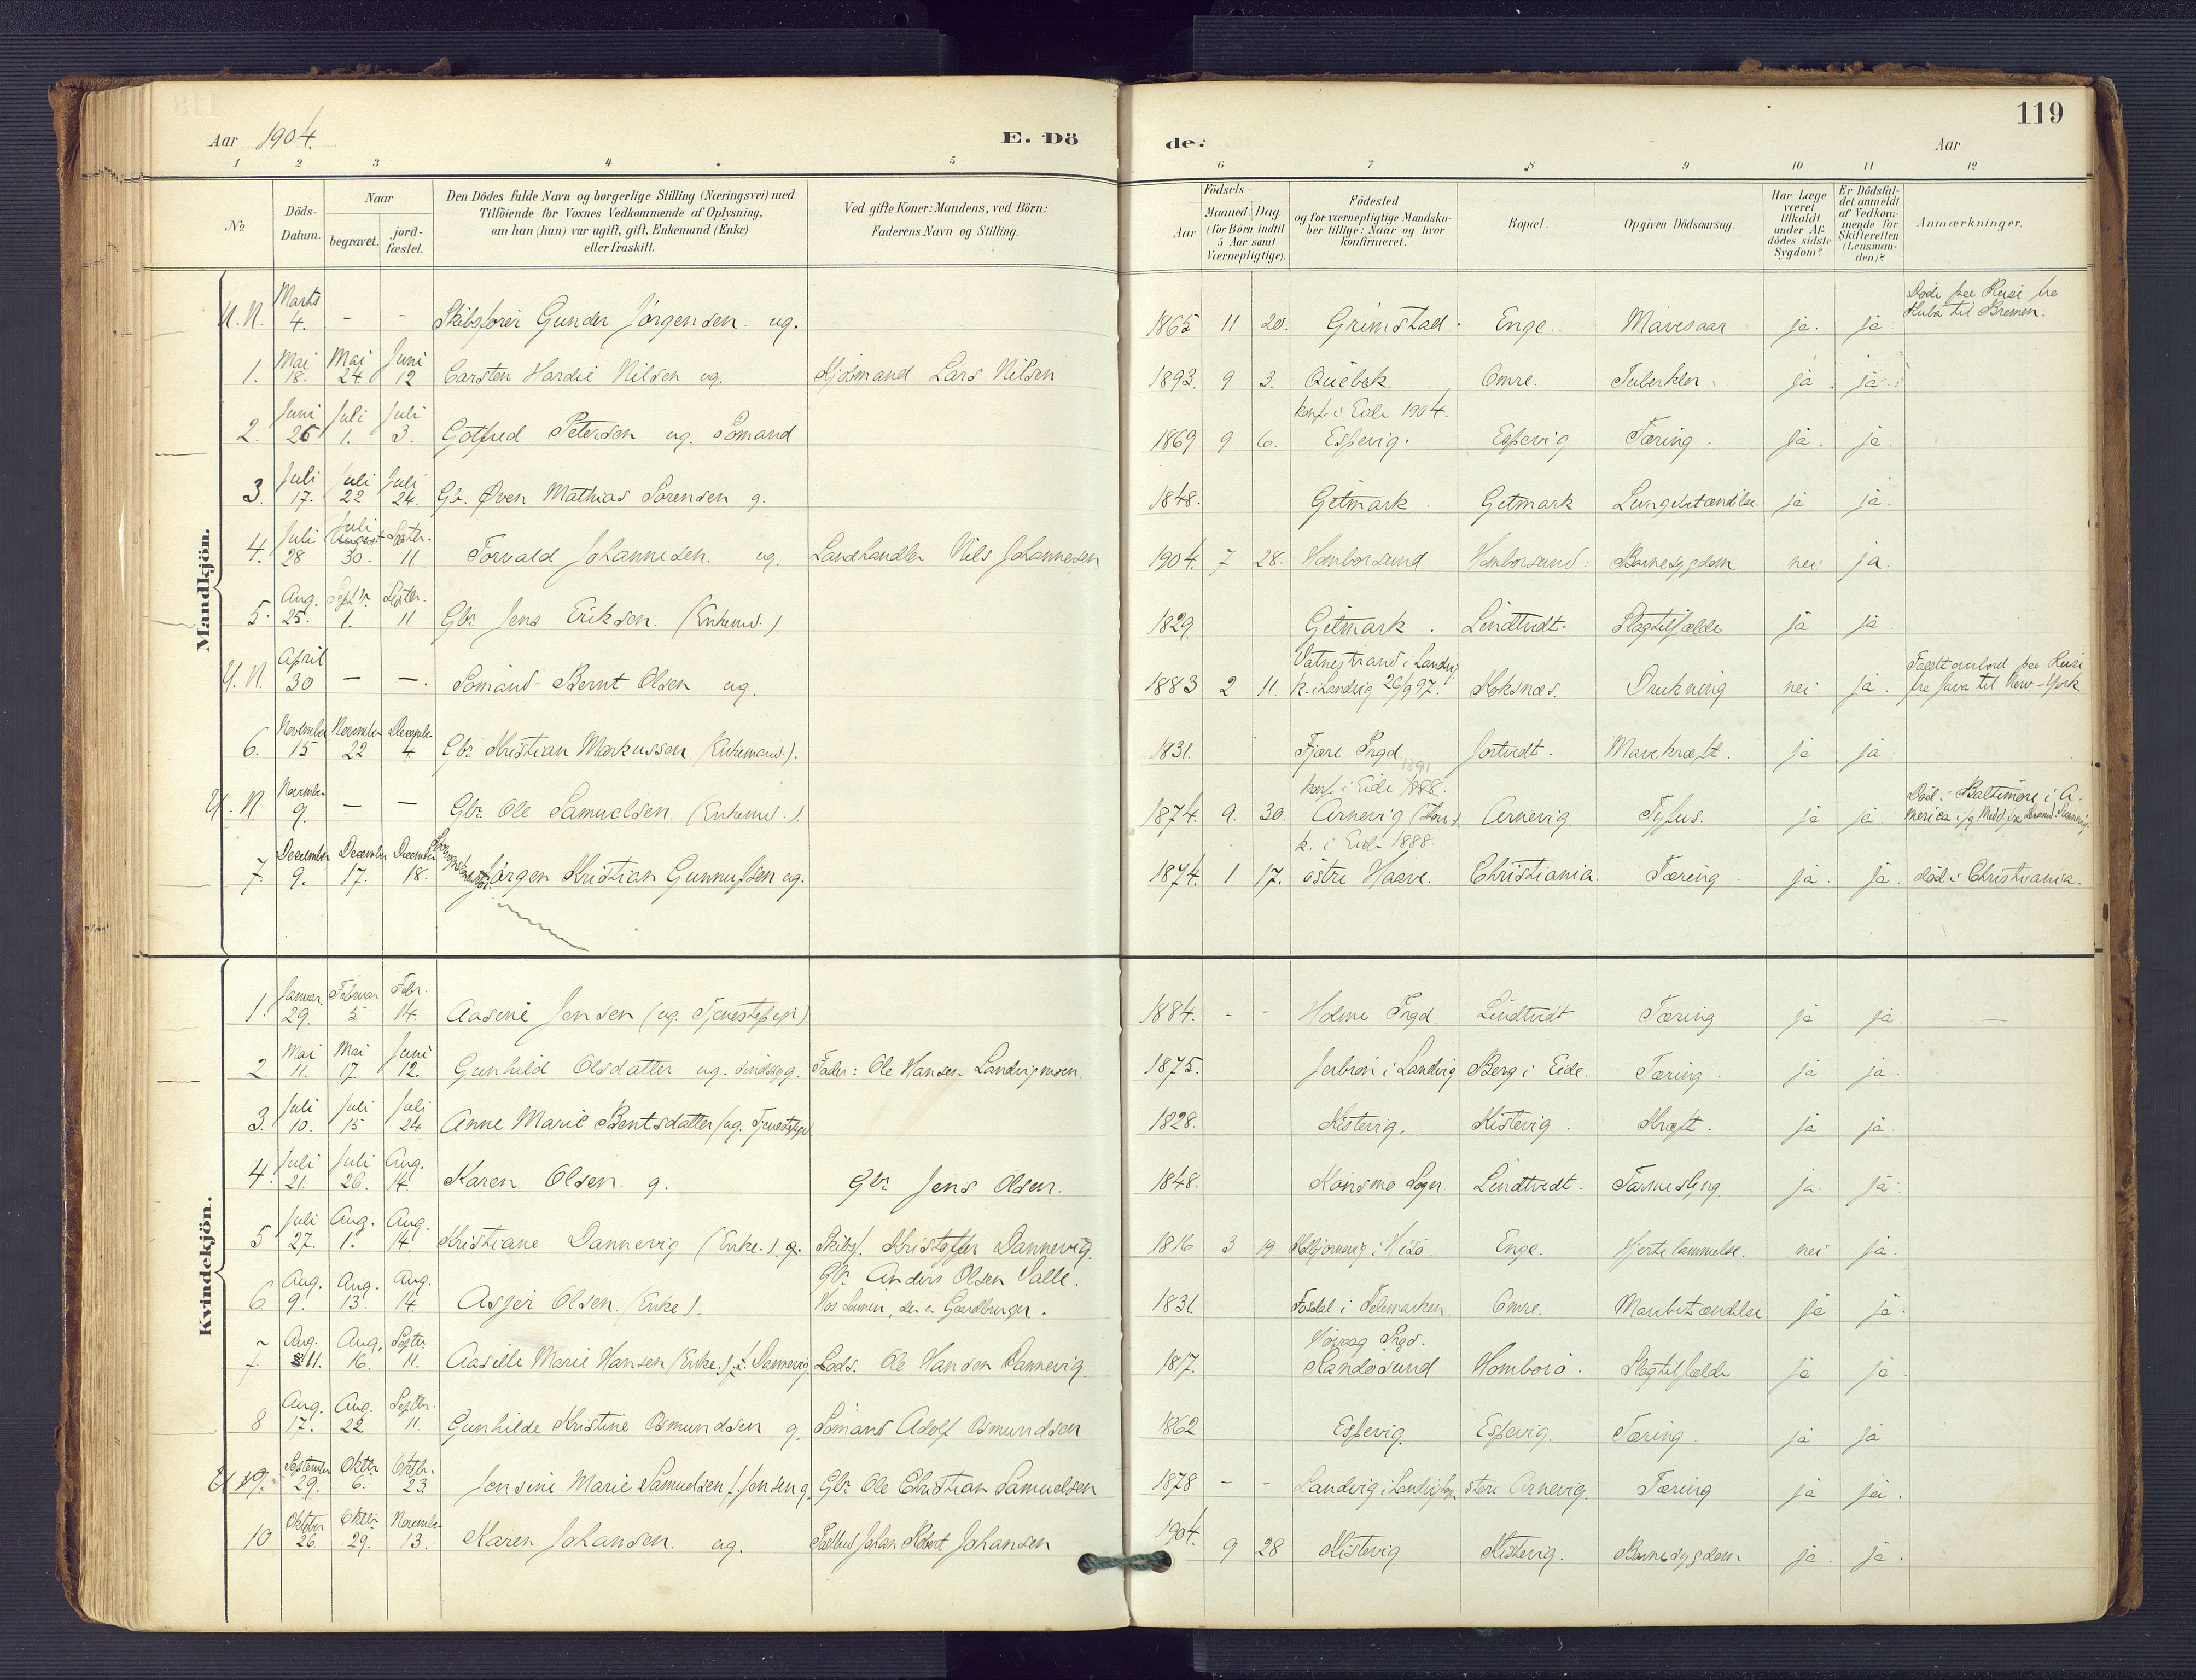 119
Aar 1904.
E. Dö
de:
Aar
1 2 3 4 5 6 7 8 9 10 11 12
No
Döds-Datum.
Naar
begravet.
jord-fæstet.
Den Dödes fulde Navn og borgerlige Stilling (Næringsvei) med
Tilföiende for Voxnes Vedkommende af Oplysning,
om han (hun) var ugift, gift, Enkemand (Enke)
eller fraskilt.
Ved gifte Koner: Mandens, ved Börn:
Faderens Navn og Stilling.
Födsels-
Aar
Maaned. Dag.
(for Börn indtil
5 Aar samt
Værnepligtige).
Födested
og for værnepligtige Mandska-
ber tillige: Naar og hvor
konfirmeret.
Bopæl.
Opgiven Dödsaarsag.
Har Læge
været
tilkaldt
under Af-
dödes sidste
Sygdom?
Er Dödsfal-
det anmeldt
af Vedkom-
mende for
Skifteretten
(Lensman-
den)?
Anmærkninger.
Mandkjön.
U.N. Marts 4. - - Skibsförer Gunder Jörgensen. ug. 1865 11 20. Grimstad. Enge. Mavesaar ja. ja. Döde paa Reise fra Kuba til Bremen.
1. Mai 18. Mai 24. Juni 12 Carsten Hardie Nilsen ug. Sjömand Lars Nilsen 1893. 9 3. Quebek. Omre. Tuberkler. ja. ja.
2. Juni 26 Juli 1. Juli 3. Gotfred Petersen ug. Sömand 1869 9 6. konf. i Eide 1904. Espevig. Espevig Tæring. ja. ja.
3. Juli 17. Juli 22 Juli 24. Gbr. Øven Mathias Sörensen g. 1848. Getmark. Getmark Lungebetændelse. ja ja.
4. Juli 28 Juli 30. Septbr. 11. Torvald Johannesen. ug. Landhandler Nils Johannesen 1904. 7 28. Homborsund Homborsund. Barnesygdom nei ja.
5. Aug. 25. Septbr. 1. Septbr. 11 Gbr. Jens Eriksen. (Enkemd.) 1829. Getmark. Lindtvedt. Slagtilfælde ja ja.
U.N. April 30 — —. Sömand Bernt Olsen ug. 1883 2 11. Vatnestrand i Landvig k. i Landvig 26/9 97. Hoksnæs. Drukning nei ja. Faldt overbord paa Reise fra Java til New-York
6. November 15 November 22 December 4 Gbr. Kristian Markussen. (Enkemand). 1831. Fjære Prgd. Jortvedt. Mavekræft. ja ja.
U.N. November 9. — — Gbr. Ole Samuelsen. (Enkemd.). 1874. 9. 30. konf. i Eide 1888. 1891 Arnevig Arnevig. Tyfus. ja ja. Död i Baltimore i A-merica
7. December 9. December 17. December 18. Jörgen Kristian Gunnufsen ug. 1874. 1 17. k. i Eide 1888. östre Haave. Christiania. Tæring. ja. ja. död i Christiania.
Kvindekjön.
1. Januar. 29. Februar 5 Febr. 14. Aasine Jensen (ug. Tjenestepige) 1884. - - Holme Prgd. Lindtvedt Tæring ja ja. —
2. Mai 11. Mai 17. Juni 12. Gunhild Olsdatter ug. sindssyg. Fader: Ole Hansen Landvigmoen. 1875. i Landvig Berg i Eide. Tæring. ja ja.
3. Juli 10. Juli 15 Juli 24 Anne Marie Bentsdatter (ug. Tjenestepige). 1828. Kistevig. Kistevig. Kræft. ja ja.
4. Juli 21. Juli 26. Aug. 14. Karen Olsen. g. Gbr. Jens Olsen. 1848. Konsmo Sogn. Lindtvedt. Tarmeslyng. ja. ja.
5 Juli 27. Aug. 1. Aug. 14. Kristiane Dannevig (Enke.) g. Skibsf. Kristoffer Dannevig. 1816 3 19. Kolbjörnsvig i Hisö. Enge. Hjertelammelse. nei ja.
6 Aug. 9. Aug. 13. Aug. 14 Asgjer Olsen. (Enke). Gbr. Anders Olsen Salle. Hos Sönnen, der er Gaardbruger. 1831 i Telemarken. Omre. Mavebetændelse ja ja.
7 Aug. 11. Aug. 16. Septbr. 11. Aasille Marie Hansen (Enke.) f. Dannevig. Lods. Ole Hansen Dannevig. 1817. Höivaag Prgd. Sandösund Homborö. Slagtilfælde ja ja.
8 Aug. 17. Aug. 22 Septbr. 11. Gunhilde Kristine Osmundsen g. Sömand Adolf Osmundsen 1862 Espevig. Espevig. Tæring. ja ja
9. September 29. Oktbr. 6. Oktbr. 23. Jensine Marie Samuelsen f. Jensen g. Gbr. Ole Christian Samuelsen 1878 - - Landvig i Landvig Sogn store Arnevig. Tæring ja ja.
10 Oktober 26. Oktbr. 29. November 13. Karen Johansen. ug. Johan Robert Johansen 1904. 9 28 Kistevig Kistevig. Barnesygdom ja. ja.